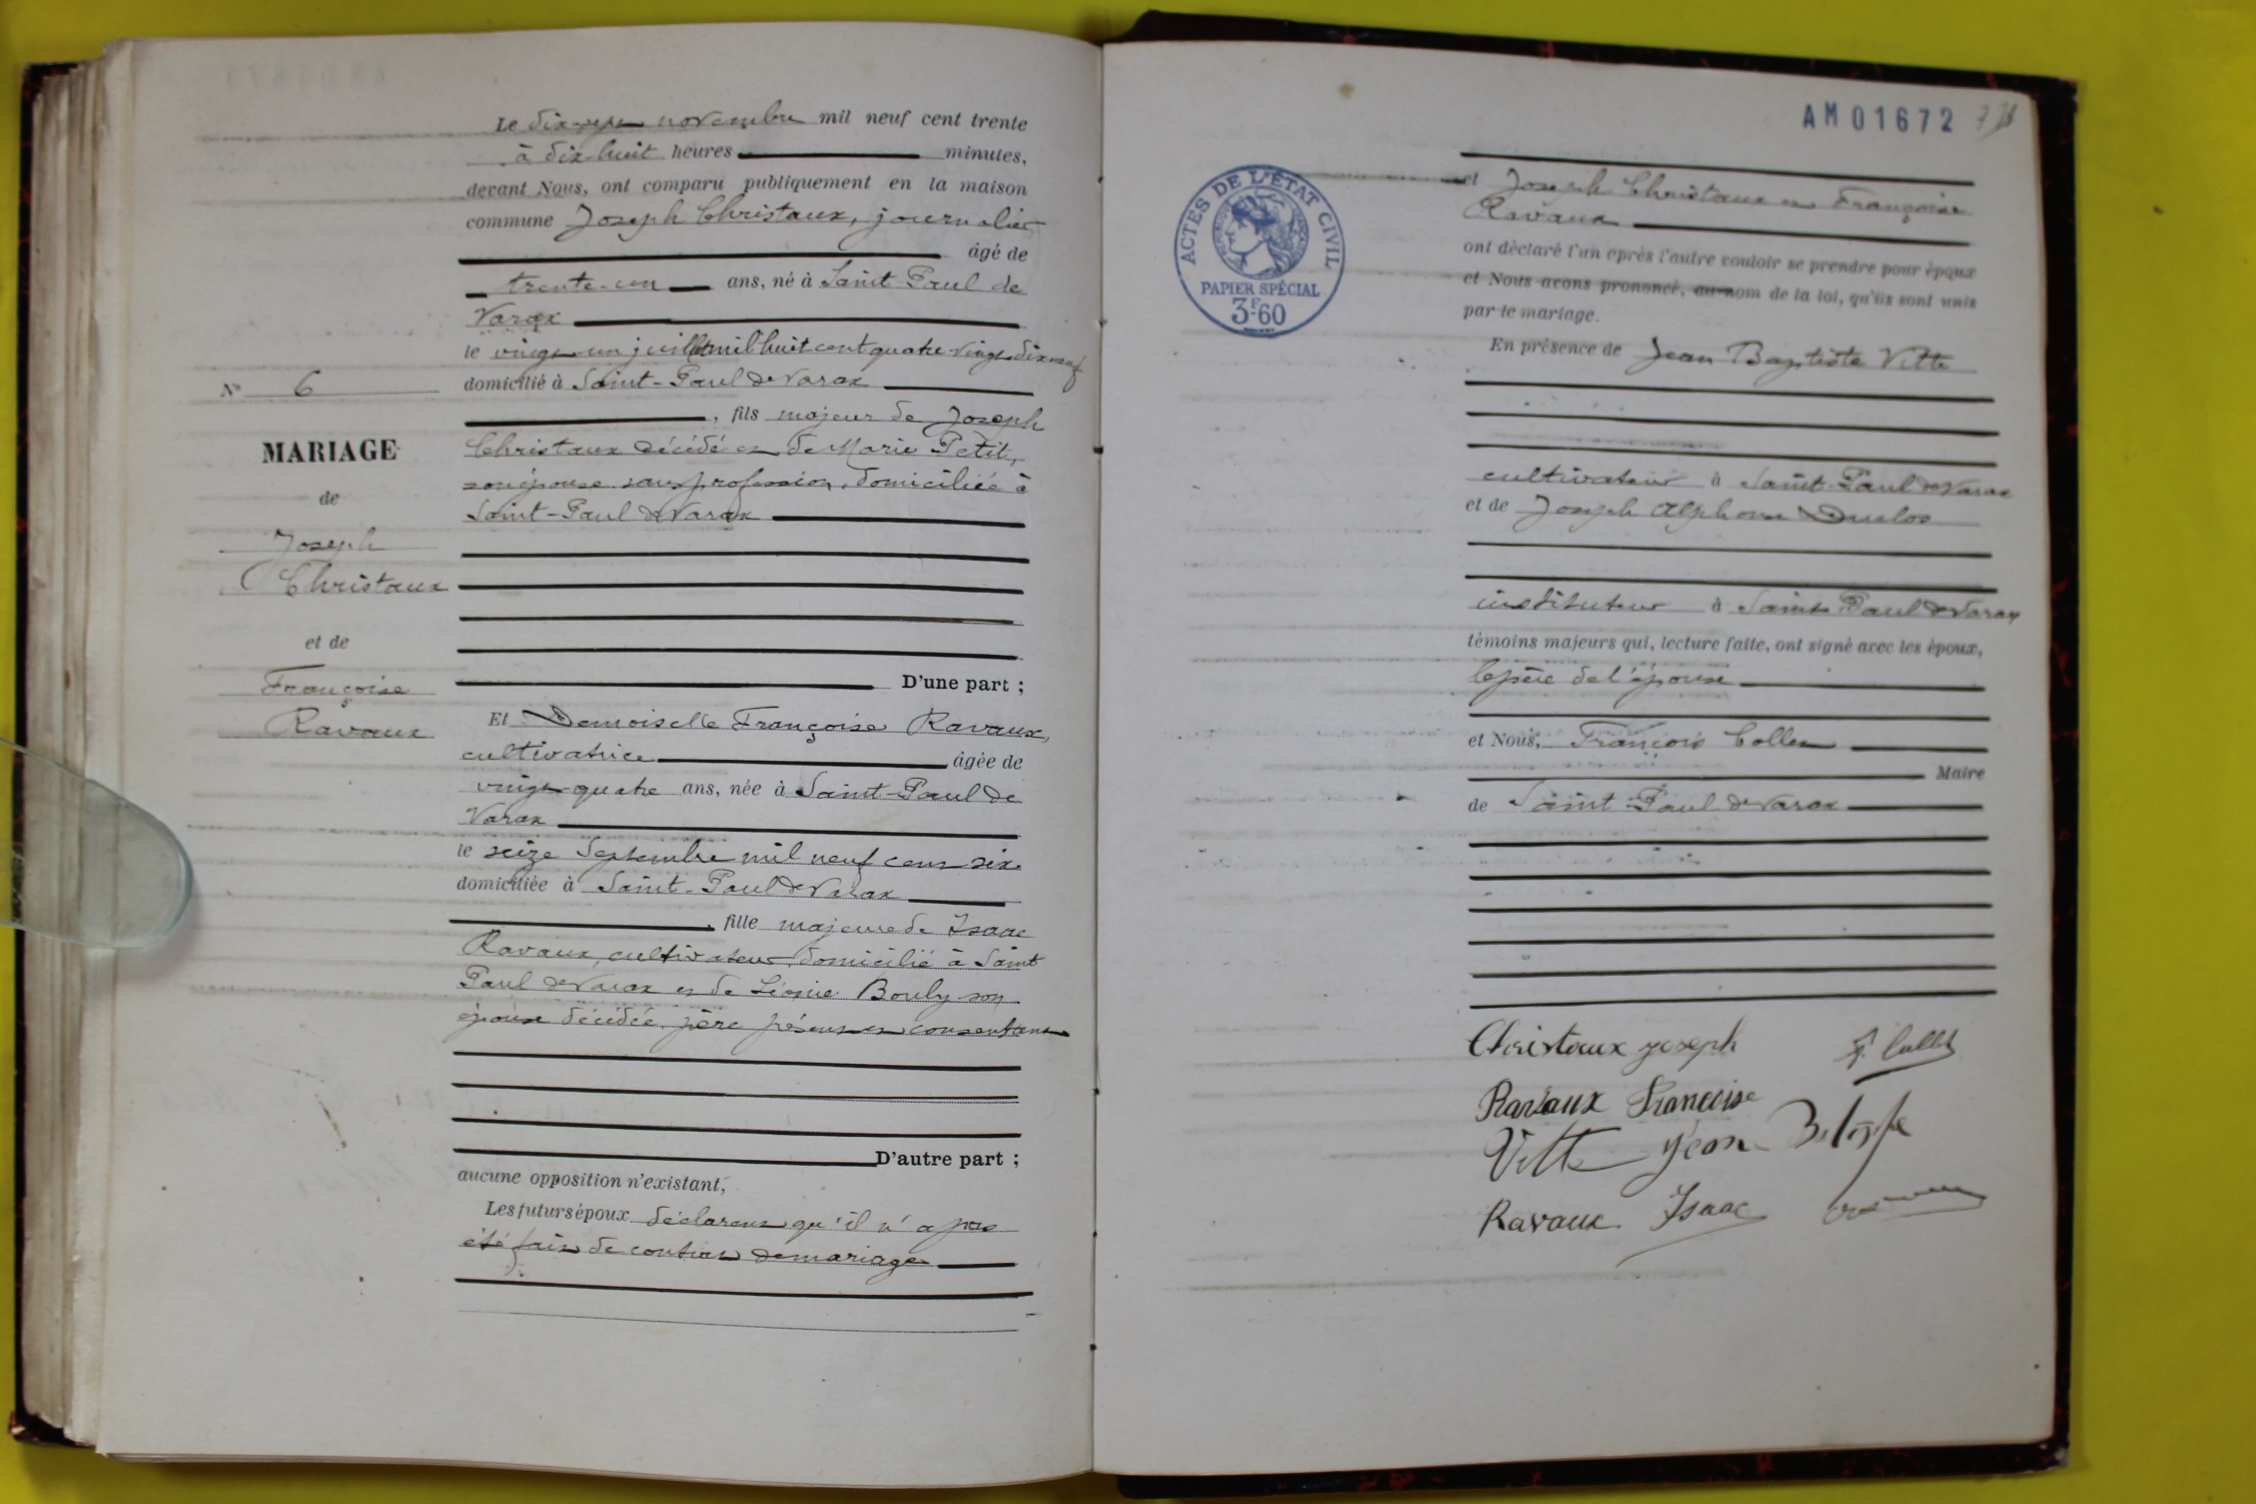 Le dix-sept novembre mil neuf cent trente
à dix huit heures minutes,
devant Nous, ont comparu publiquement en la maison
commune Joseph Christaux, journalier
âgé de
trente-un ans, né à Saint Paul de
Varax
le vingt un juillet mil huit cent quatre-vingt dix neuf
domicilié à Saint-Paul de Varax
, fils majeur de Joseph
Christaux décédé et de Marie Petit,
son épouse sans profession, domiciliée à
Saint-Paul de Varax
D'une part ;
N° 6
MARIAGE
de
Joseph
Christaux
et de
Françoise
Ravaux
Et Demoiselle Françoise Ravaux,
cultivatrice âgée de
vingt-quatre ans, née à Saint-Paul de
Varax
le seize Septembre mil neuf cent six
domiciliée à Saint-Paul de Varax
, fille majeure de Isaac
Ravaux, cultivateur, domicilié à Saint
Paul de Varax et de Léonie Bouly son
épouse décédée, père présent et consentant
D'autre part ;
aucune opposition n'existant,
Les futurs époux déclarent qu'il n'a pas
été fait de contrat de mariage
AM01672
ACTES DE L'ÉTAT CIVIL
PAPIER SPÉCIAL
3F60
et Joseph Christaux et Françoise
Ravaux
ont déclaré l'un après l'autre vouloir se prendre pour époux
et Nous avons prononcé, au nom de la loi, qu'ils sont unis
par le mariage.
En présence de Jean Baptiste Vitte
cultivateur à Saint-Paul de Varax
et de Joseph Alphonse Duclos
instituteur à Saint-Paul de Varax
témoins majeurs qui, lecture faite, ont signé avec les époux,
le père de l'épouse
et Nous, François Collet
Maire
de Saint-Paul de Varax
Christaux Joseph
F. Collet
Ravaux Françoise
Vitte Jean
Ravaux Isaac